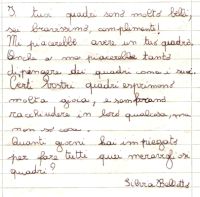 I tuoi quadri sono molto belli,
sei bravissimo, complimenti!
Mi piacerebbe avere un tuo quadro.
Anche a me piacerebbe tanto
dipingere dei quadri come i suoi.
Certi vostri quadri esprimono
molta gioia, e sembrano
racchiudere in loro qualcosa, ma
non so cosa.
Quanti giorni hai impiegato
per fare tutti quei meravigliosi
quadri?
Silvia